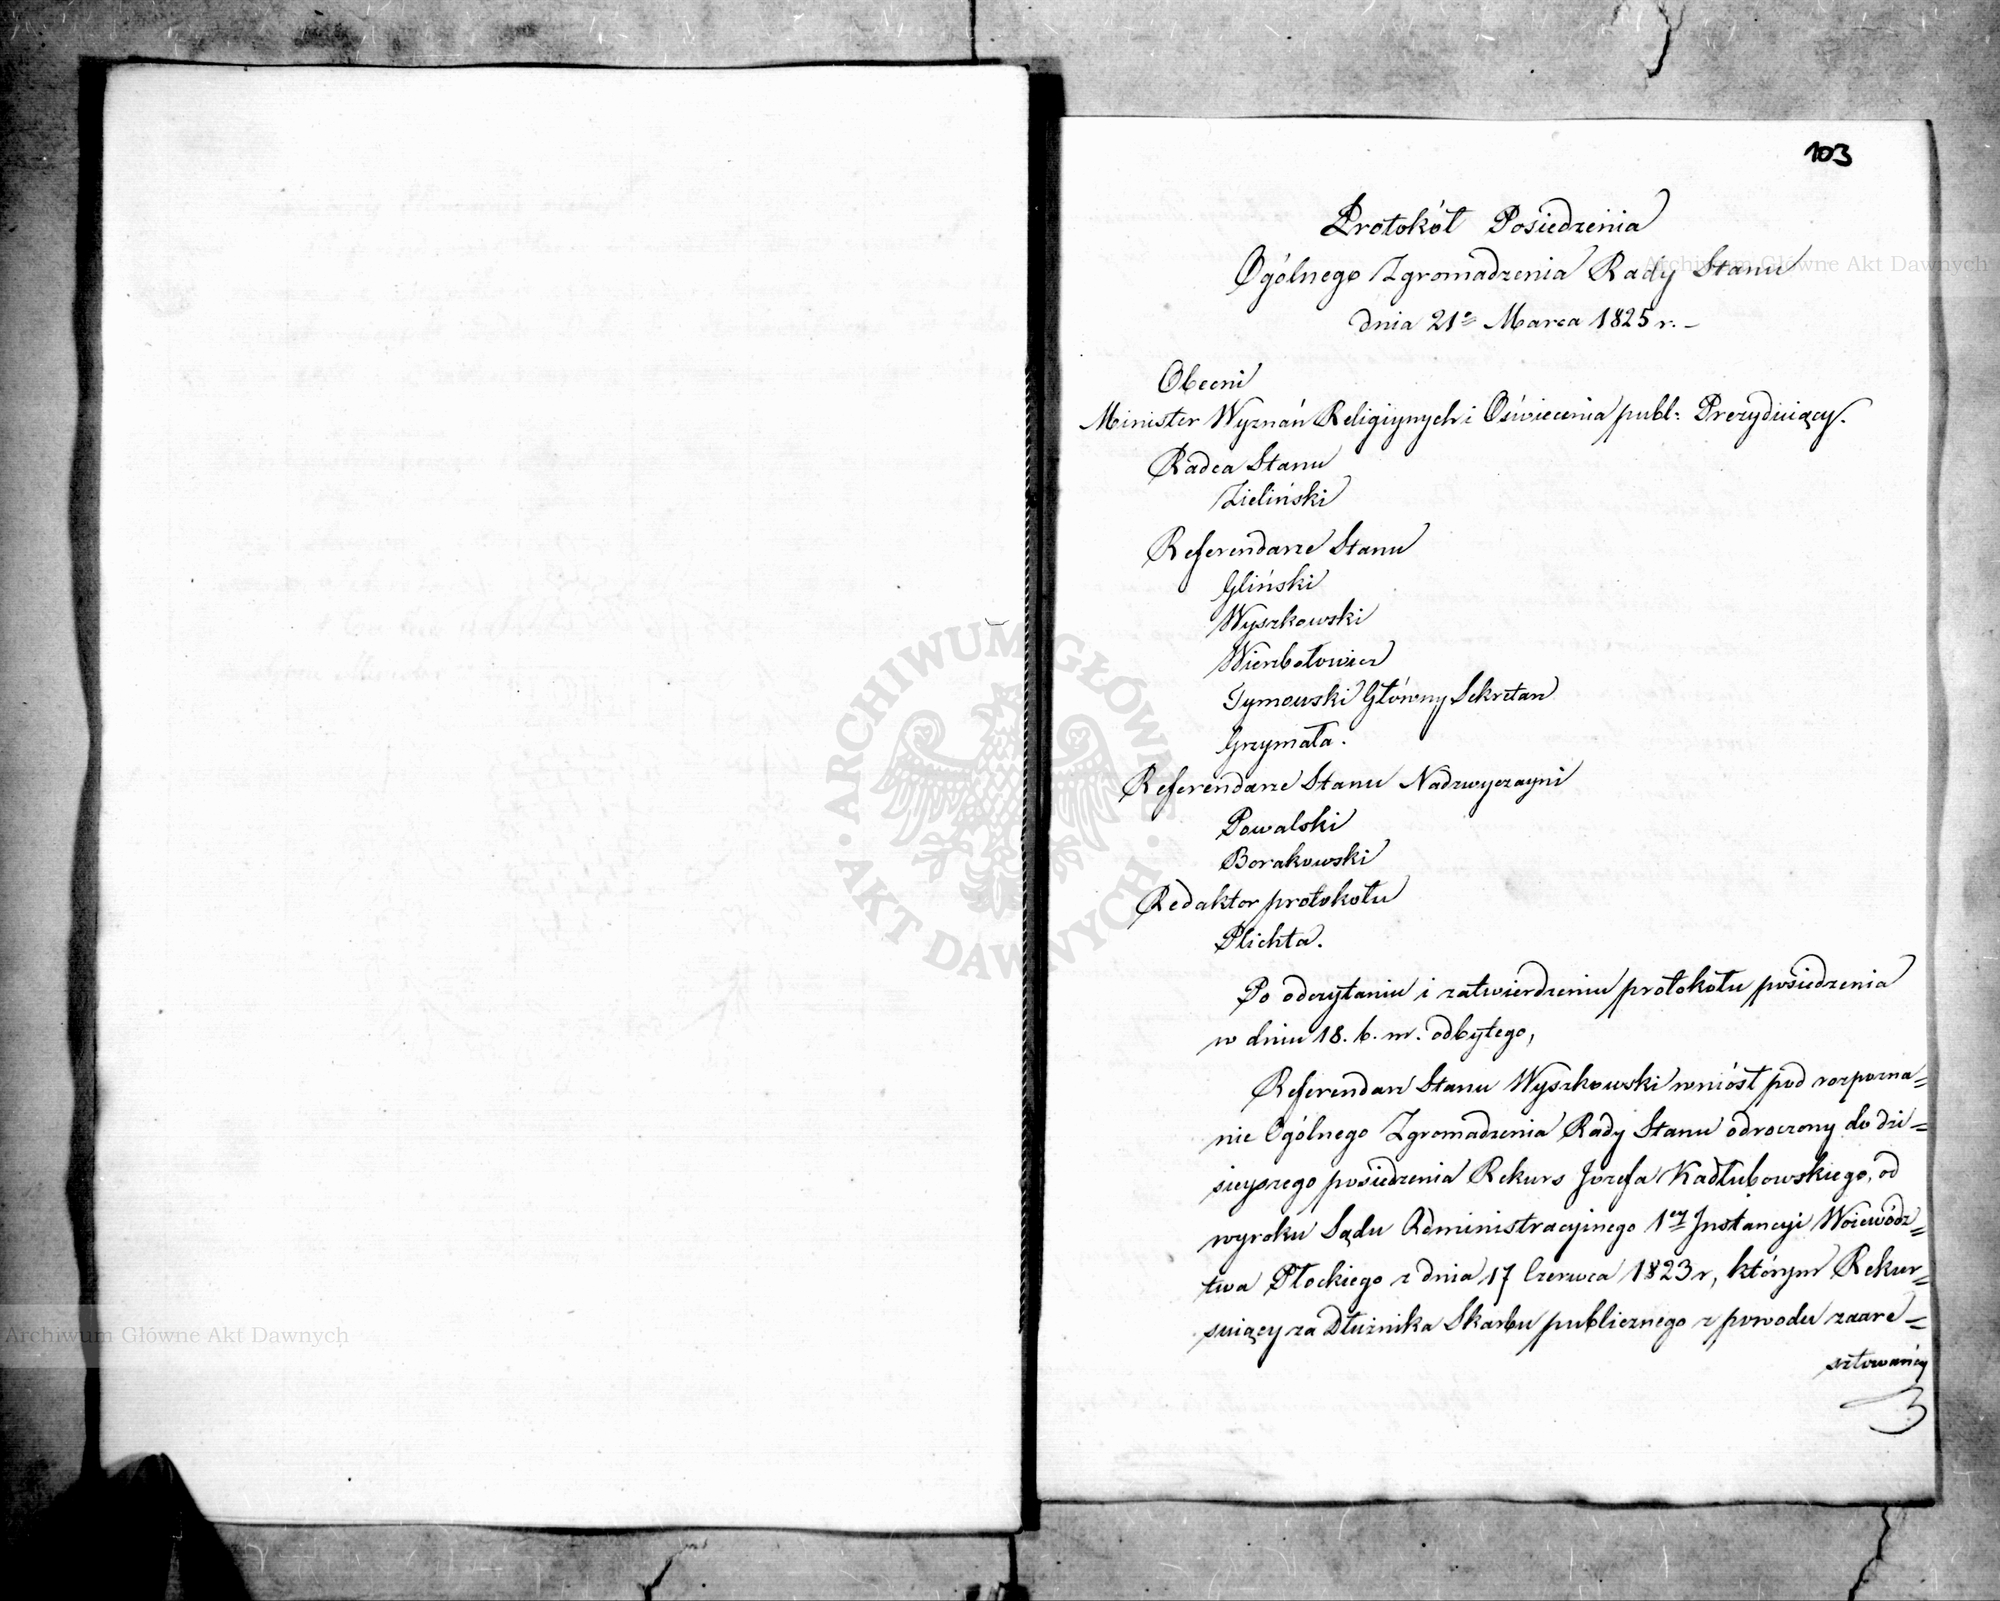 103
Protokół Posiedzenia
Ogólnego Zgromadzenia Rady Stanu
dnia 21º Marca 1825 r. –
Obecni
Minister Wyznań Religiynych i Oświecenia publ: Prezyduiący.
Radca Stanu
Zieliński
Referendarze Stanu
Gliński
Wyszkowski
Wierzbołowicz
Tymowski Główny Sekretarz
Grzymała.
Referendarze Stanu Nadzwyczayni
Powalski
Borakowski
Redaktor protokołu
Plichta.
Po odczytaniu i zatwierdzeniu protokołu posiedzenia
w dniu 18. b. m. odbytego,
Referendarz Stanu Wyszkowski wniósł pod rozpozna=
nie Ogólnego Zgromadzenia Rady Stanu odroczony do dzi=
sieyszego posiedzenia Rekurs Jozefa Kadłubowskiego, od
wyroku Sądu Administracyjnego 1ey Instancyi Woiewódz=
twa Płockiego z dnia 17 Czerwca 1823 r, którym Rekur=
suiący za Dłużnika Skarbu publicznego z powodu zaare=
sztowaney
Archiwum Główne Akt Dawnych
Archiwum Główne Akt Dawnych
ARCHIWUM GŁÓWNE · AKT DAWNYCH ·